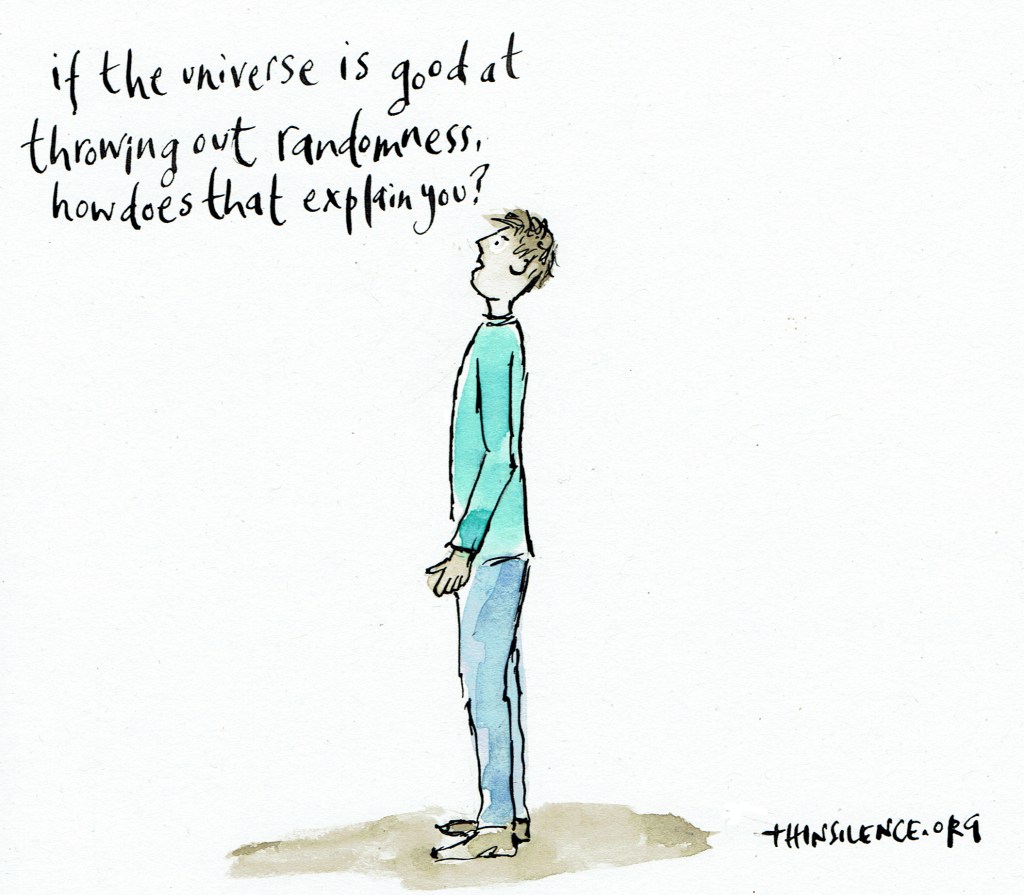 if the universe is good at
throwing out randomness,
how does that explain you?
THINSILENCE.ORG